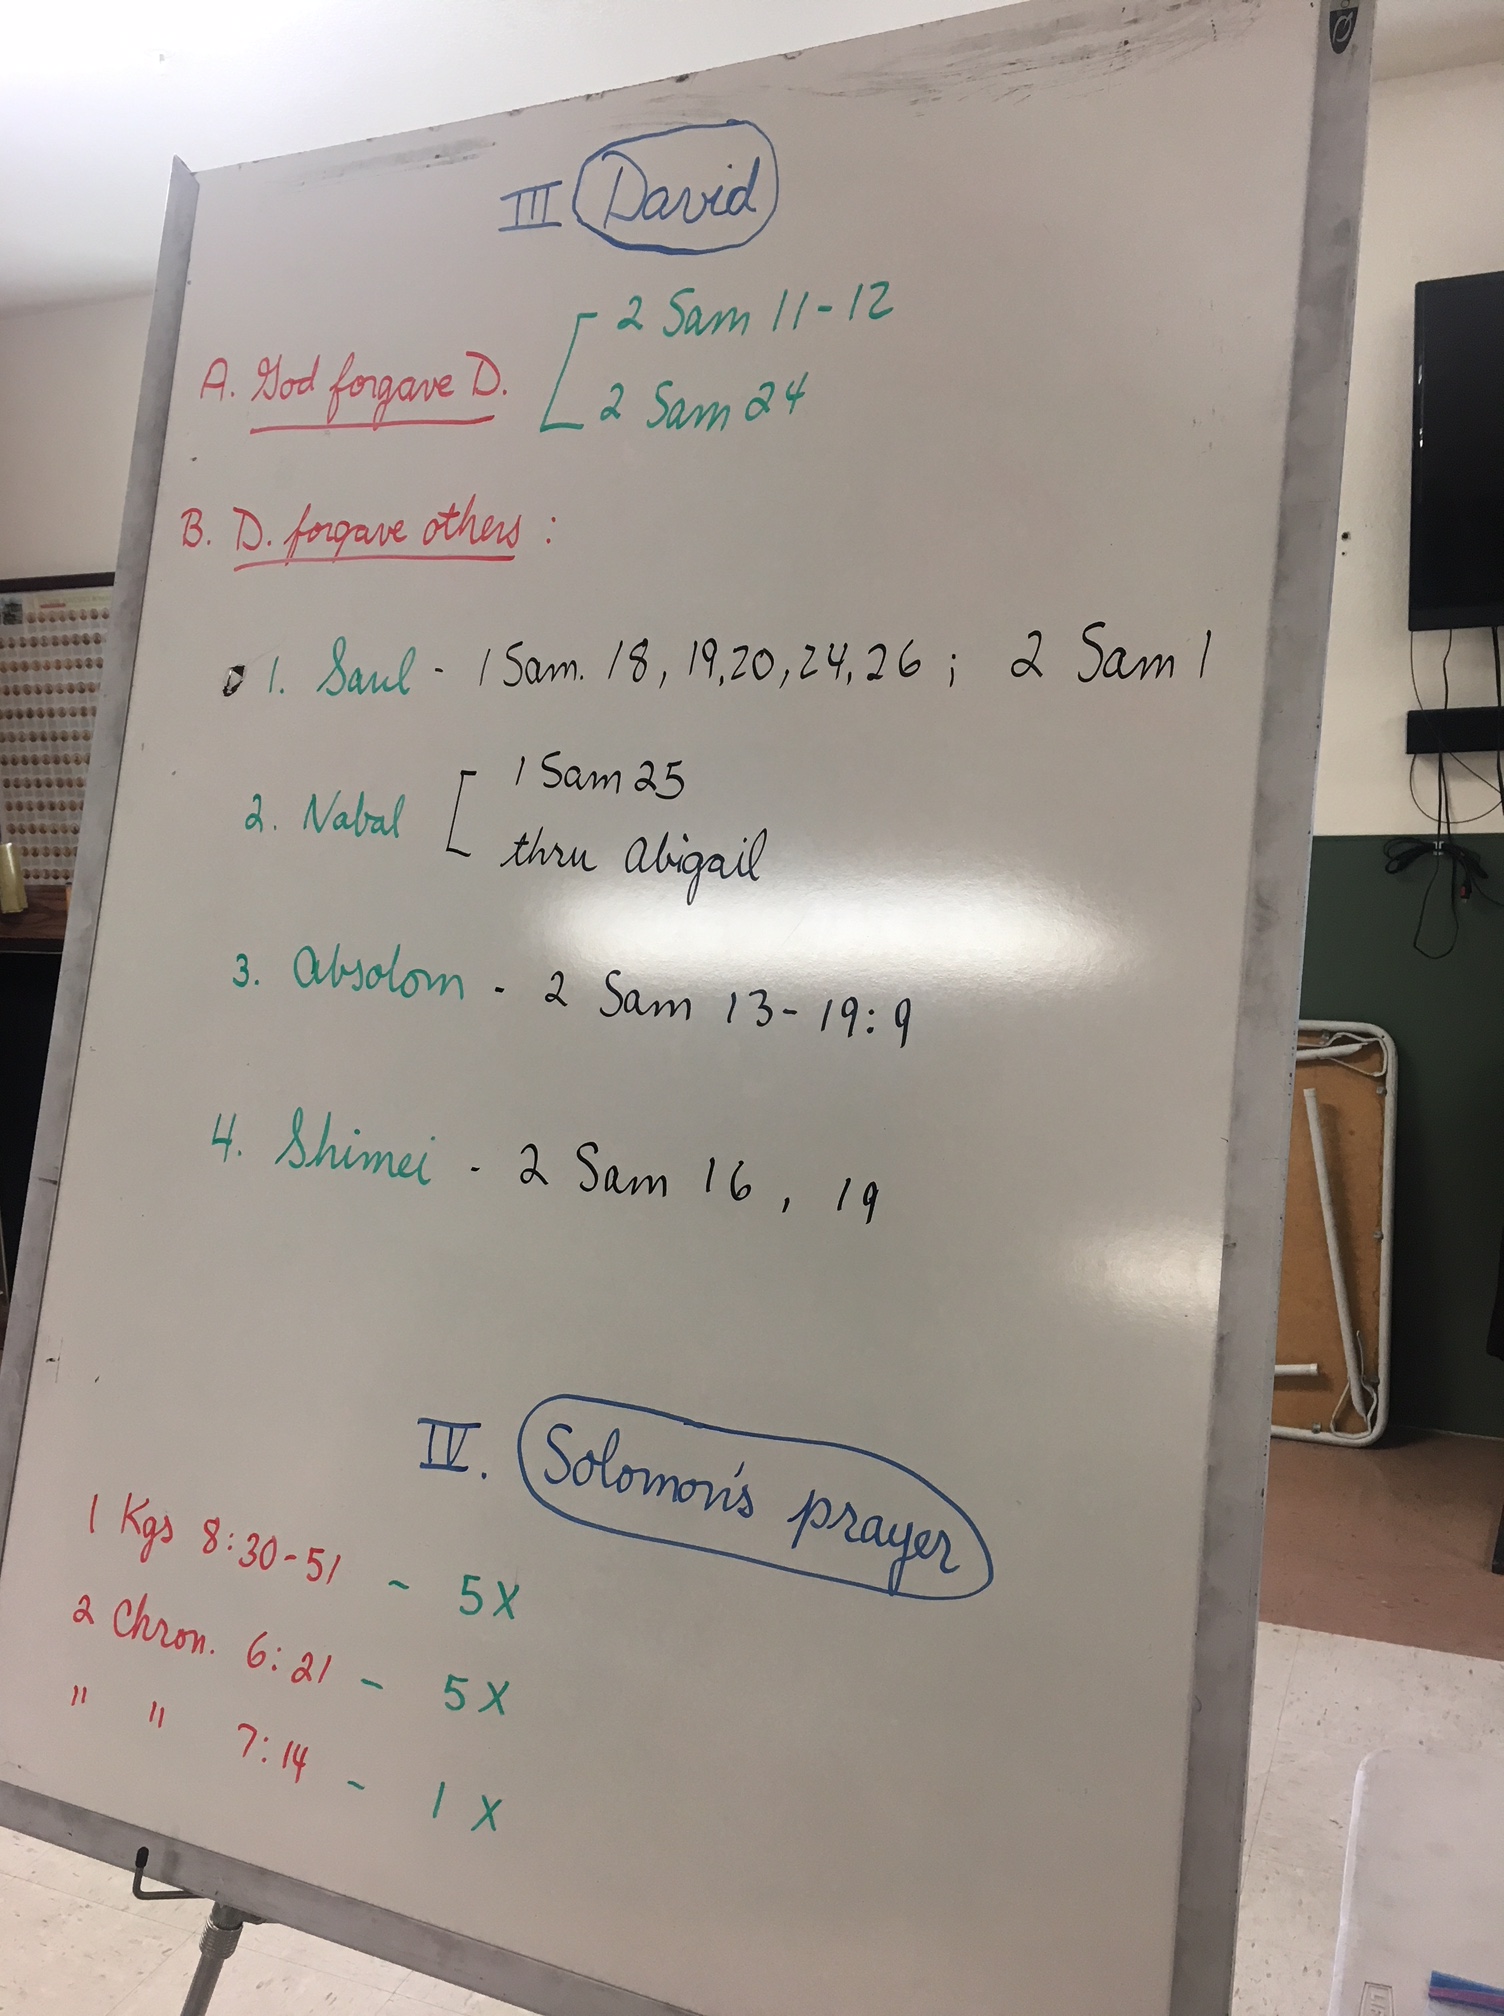 III David
A. God forgave D.
2 Sam 11-12
2 Sam 24
B. D. forgave others :
1. Saul - 1 Sam. 18, 19,20,24,26 ; 2 Sam 1
2. Nabal
1 Sam 25
thru Abigail
3. Absolom - 2 Sam 13-19:9
4. Shimei - 2 Sam 16, 19
IV. Solomon's prayer
1 Kgs 8:30-51 - 5X
2 Chron. 6:21 - 5X
" " 7:14 - 1 X